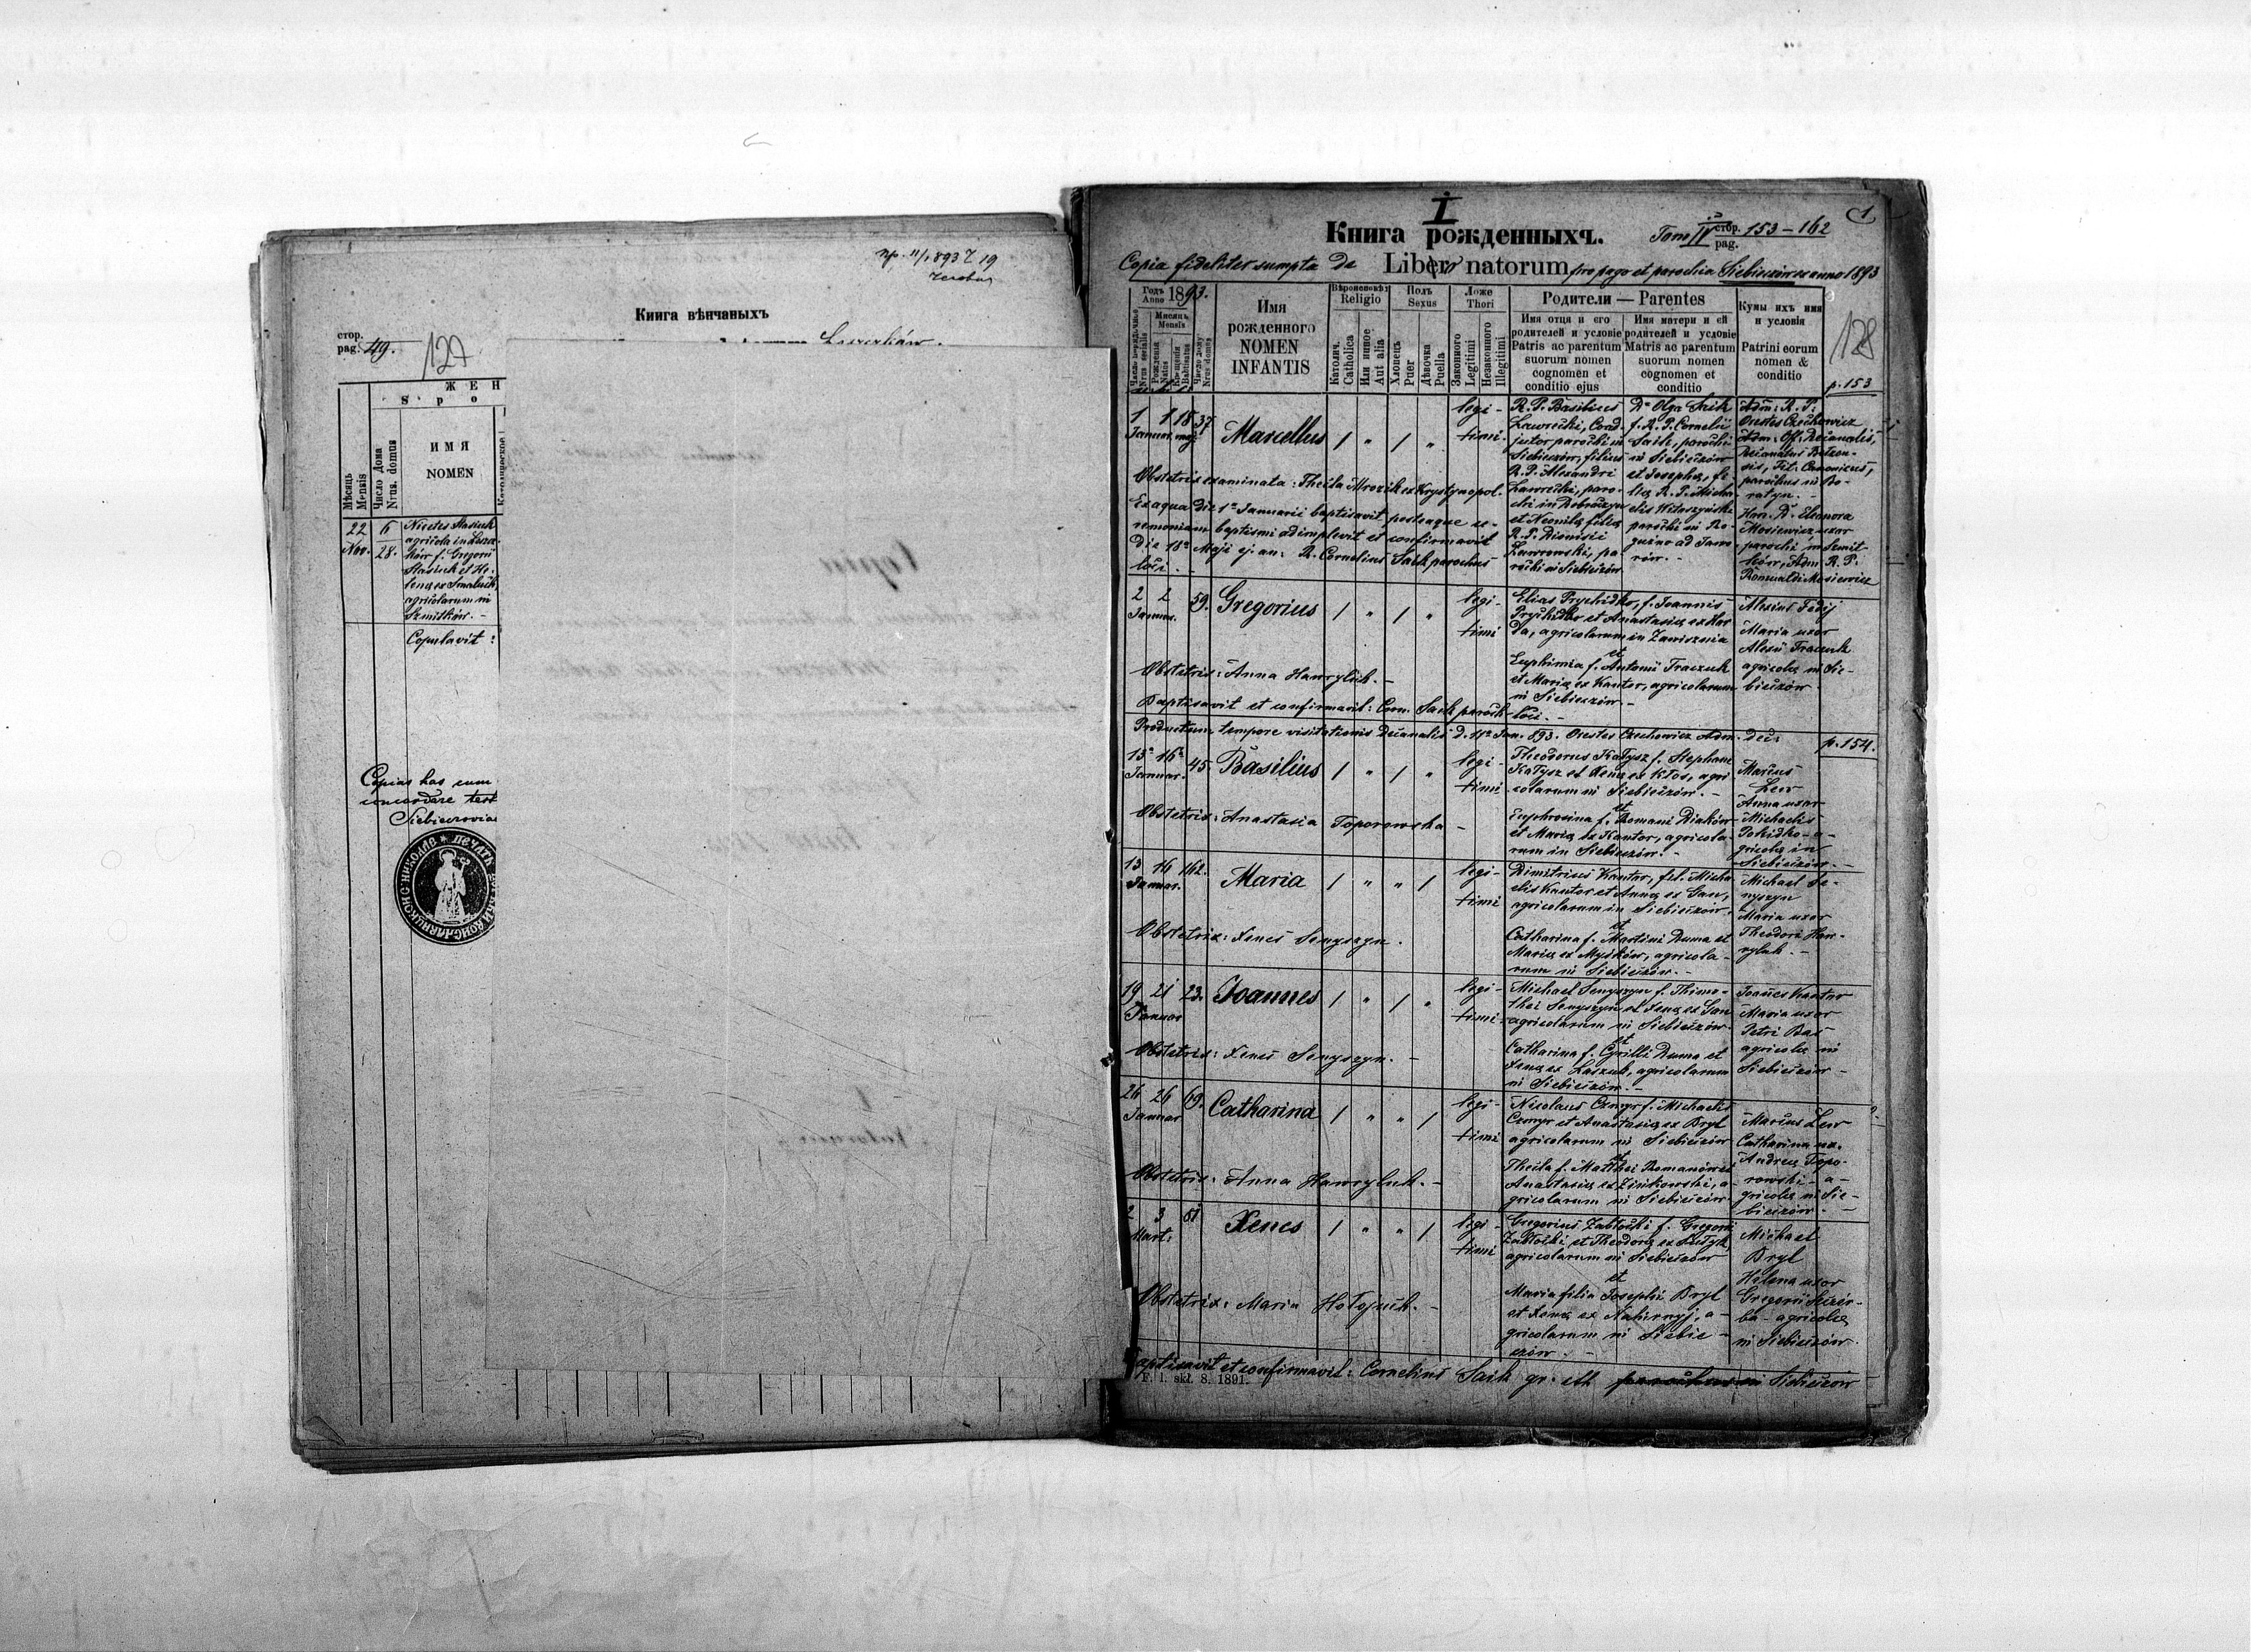 Книга вѣнчаныхъ
стор.
pag. 49.
127
ЖЕН
Spo
Мѣсяць
Mensis
Число Дома
Nrus. domus
ИМЯ
NOMEN
22 6
Nov. 28.
agricola in Leszcz-
ków f. Gregorii
Stasiuk et He-
agricolarum in
Szmitków. -
Copulavit :
Copias has cum
concordare test
I
Книга рожденныхъ.
Tom IV стор. pag. 153-162
1
Copia fideliter sumpta de Libro natorum pro pago et parochia Siebieczów ex anno 1893
128
Годъ
Anno 1893.
Мѣсяць
Mensis
Имя
рожденного
NOMEN
INFANTIS
Religio
Католич.
Catholica
Или инное
Aut alia
Полъ
Sexus
Хлопець
Puer
Дѣвочка
Puella
Ложе
Thori
Законного
Legitimi
Незаконного
Illegitimi
Родители — Parentes
Имя отця и его
родителей и условіе
Patris ac parentum
suorum nomen
cognomen et
conditio ejus
Имя матери и ей
родителей и условіе
Matris ac parentum
suorum nomen
cognomen et
conditio
Кумы ихъ имя
и условія
Patrini eorum
nomen &
conditio
p. 153
1 1 18 37
Januar. maj.
Marcellus
legi-
timi.
R. P. Basilius
Ławrecki, Coad-
jutor parochi in
Siebieczów, filius
R. P. Alexandri
Ławrecki, paro-
chi in Dobraczyn
et Neonilæ filiæ
R. P. Dionisii
Ławrowski, pa-
rochi in Siebieczów
Dna Olga Saik
f. R. P. Cornelii
Saik, parochi
in Siebieczów
et Josephæ, fi-
liæ R. P. Micha-
elis Witoszyński
parochi in Ro-
guźno ad Jawo-
rów. -
Adm: R. P.
Orestes Czechowicz
Adm. Off. Decanalis,
Decanatus Betzen-
sis, Tit. Canonicus,
parochus in Bo-
ratyn. -
Hon. D. Eleonora
Mosiewicz uxor
parochi in Szmit-
ków, Adm. R. P.
Romualdi Mosiewicz
Obstetrix examinata: Thecla Mrozik ex Krystynopol.
Ex aqua die 1a Januarii baptisavit posteaque ce-
remoniam baptismi adimplevit et confirmavit
Die 18a Maji ej. an: R. Cornelius Saik parochus
loci. -
2 2 59.
Januar.
Gregorius
legi-
timi
Elias Prychidko, f. Joannis
Prychidko et Anastasiæ ex Kor-
da, agricolarum in Zawisznia
et
Euphimia f. Antonii Traczuk
et Mariæ ex Kantor, agricolarum
in Siebieczów. -
Alexius Fedij
Maria uxor
Alexii Traczuk
agricolæ in Sie-
bieczów
Obstetrix: Anna Hawryluk. -
Baptisavit et confirmavit: Corn. Saik paroch.
loci. -
Productum tempore visitationis decanalis d. 14a Jan. 893. Orestes Czechowicz Adm. dec.
p. 154.
15 16 45.
Januar.
Basilius
legi-
timi
Theodorus Kałysz f. Stephani
Kałysz et Xenæ ex Kłos, agri-
colarum in Siebieczów. -
et
Euphrosina f. Romani Diaków
et Mariæ ex Kantor, agricola-
rum in Siebieczów. -
Marcus
Lew
Anna uxor
Michaelis
Pohidko - a-
gricolæ in
Siebieczów. -
Obstetrix: Anastasia Toporowska -
13 16 162.
Januar.
Maria
legi-
timi
Dimitrius Kantor, fil. Micha-
elis Kantor et Annæ ex Gan,
agricolarum in Siebieczów,
et
Catharina f. Martini Duma et
Mariæ ex Myśków, agricola-
rum in Siebieczów. -
Michael Se-
nyszyn
Maria uxor
Theodori Haw-
ryluk. -
Obstetrix: Xenes Senyszyn.
19 21 23.
Januar
Joannes
legi-
timi.
Michael Senyszyn f. Thimo-
thei Senyszyn et Xenæ ex Gan
agricolarum in Siebieczów.
et
Catharina f. Cyrilli Duma et
Xenæ ex Laszuk, agricolarum
in Siebieczów. -
Joannes Kantor
Maria uxor
Petri Bas
agricolæ in
Siebieczów -
Obstetrix: Xenes Senyszyn. -
26 26 69.
Januar
Catharina
legi-
timi
Nicolaus Czmyr f. Michaelis
Czmyr et Anastasiæ ex Bryl
agricolarum in Siebieczów
et
Thecla f. Matthei Romanów et
Anastasiæ ex Zinkowski, a-
gricolarum in Siebieczów.
Marcus Lew
Catharina ux.
Andreæ Topo-
rowski - a-
gricolæ in Sie-
bieczów. -
Obstetrix: Anna Hawryluk. -
2 3 81
Mart.
Xenes
legi-
timi
Gregorius Zabłocki f. Gregorii
Zabłocki et Theodoræ ex
agricolarum in Siebieczów
et
Maria filia Josephi Bryl
et Xenæ ex Nahirnyj, a-
gricolarum in Siebie-
czów. -
Michael
Bryl
Helena uxor
Gregorii Szczer-
ba - agricolæ
in Siebieczów.
Obstetrix: Maria Hołojuch. -
Baptisavit et confirmavit: Cornelius Saik gr. cth parochus in Siebieczów
F. 1. skł. 8. 1891.